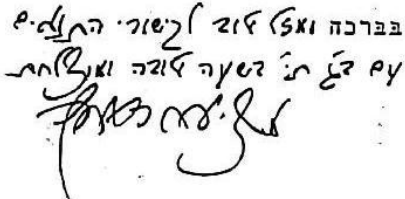 בברכה ומזל טוב לקישורי התנאים
עם ב"ג תי' בשעה טובה ומוצלחת